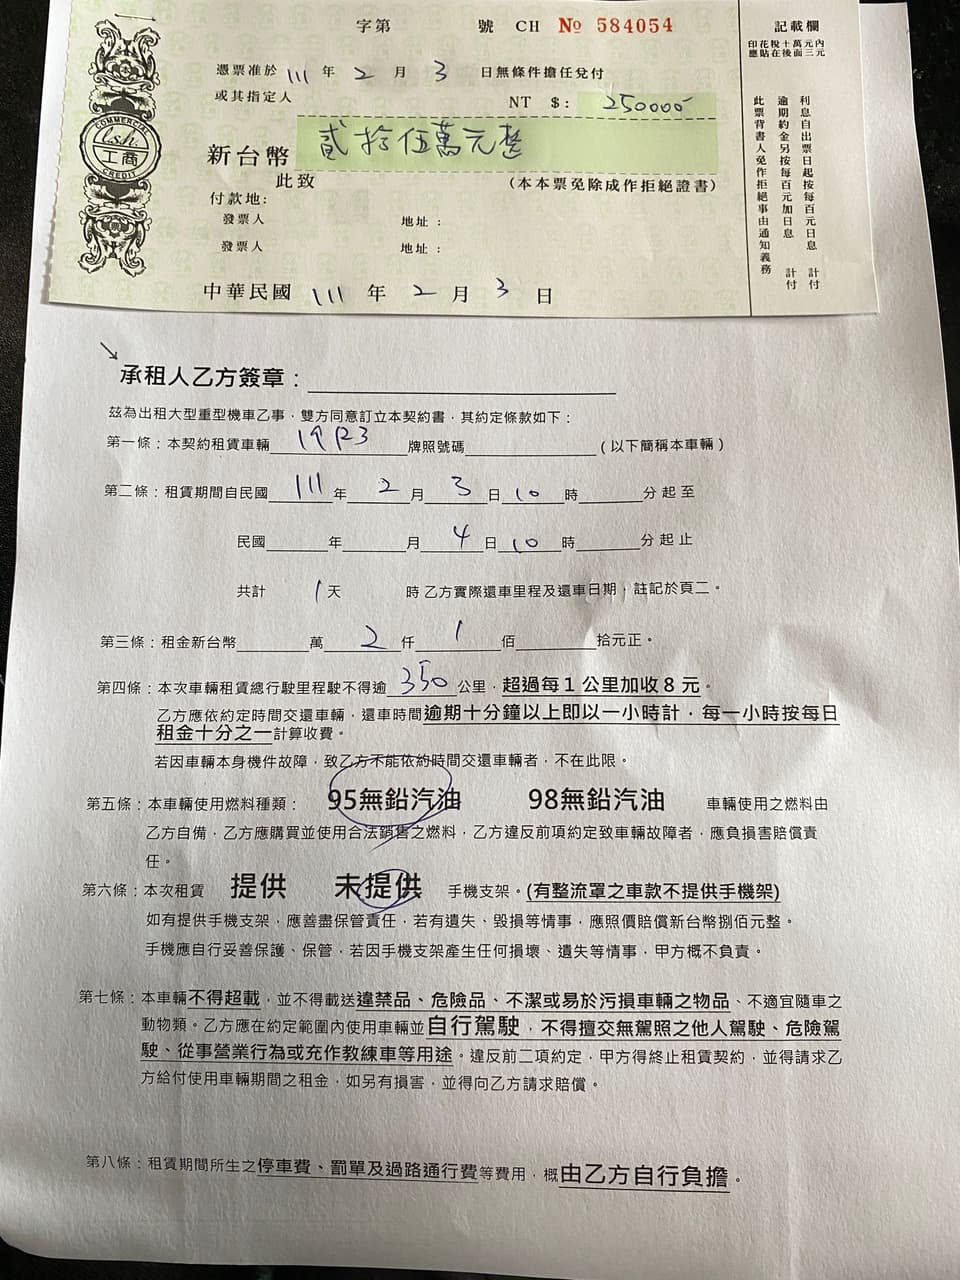 字第 號 CH No 584054
憑票准於 111 年 2 月 3 日無條件擔任兌付
或其指定人
NT $: 250000
新台幣 貳拾伍萬元整
此致 (本本票免除成作拒絕證書)
付款地:
發票人 地址:
發票人 地址:
中華民國 111 年 2 月 3 日
COMMERCIAL
C.s.h.
工商
CREDIT
記載欄
印花稅十萬元內
應貼在後面三元
利息自出票日起按每百元日息 計付
逾期約金另按每百元加日息 計付
此票背書人免作拒絕事由通知義務
承租人乙方簽章:
茲為出租大型重型機車乙事,雙方同意訂立本契約書,其約定條款如下:
第一條:本契約租賃車輛 牌照號碼 (以下簡稱本車輛)
第二條:租賃期間自民國 111 年 2 月 3 日 10 時 分起至
民國 年 月 4 日 10 時 分起止
共計 1 天 時乙方實際還車里程及還車日期,註記於頁二。
第三條:租金新台幣 萬 2 仟 1 佰 拾元正。
第四條:本次車輛租賃總行駛里程駛不得逾 350 公里,超過每1公里加收8元。
乙方應依約定時間交還車輛,還車時間逾期十分鐘以上即以一小時計,每一小時按每日
租金十分之一計算收費。
若因車輛本身機件故障,致乙方不能依約時間交還車輛者,不在此限。
第五條:本車輛使用燃料種類: 95無鉛汽油 98無鉛汽油 車輛使用之燃料由
乙方自備,乙方應購買並使用合法銷售之燃料,乙方違反前項約定致車輛故障者,應負損害賠償責
任。
第六條:本次租賃 提供 未提供 手機支架。(有整流罩之車款不提供手機架)
如有提供手機支架,應善盡保管責任,若有遺失、毀損等情事,應照價賠償新台幣捌佰元整。
手機應自行妥善保護、保管,若因手機支架產生任何損壞、遺失等情事,甲方概不負責。
第七條:本車輛不得超載,並不得載送違禁品、危險品、不潔或易於污損車輛之物品、不適宜隨車之
動物類。乙方應在約定範圍內使用車輛並自行駕駛,不得擅交無駕照之他人駕駛、危險駕
駛、從事營業行為或充作教練車等用途。違反前二項約定,甲方得終止租賃契約,並得請求乙
方給付使用車輛期間之租金,如另有損害,並得向乙方請求賠償。
第八條:租賃期間所生之停車費、罰單及過路通行費等費用,概由乙方自行負擔。